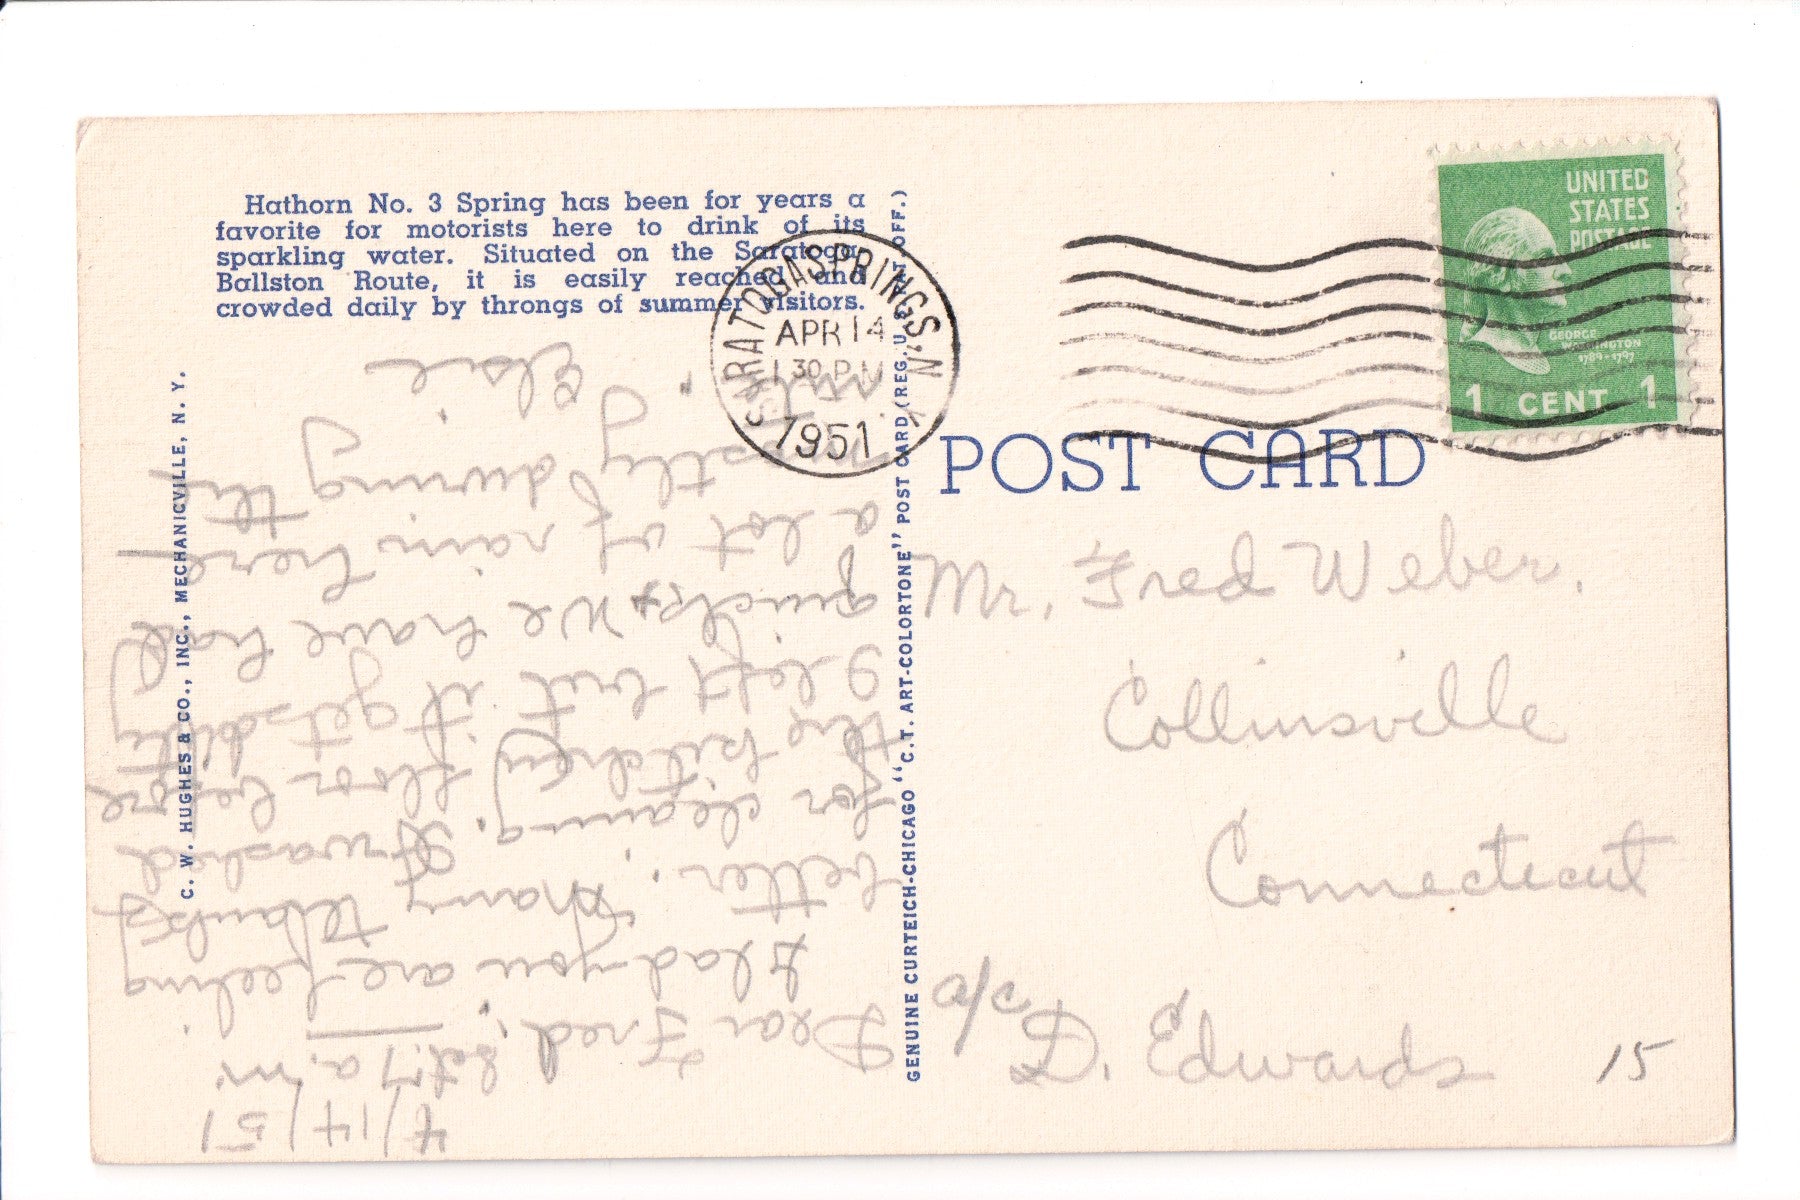 Hathorn No. 3 Spring has been for years a
favorite for motorists here to drink of its
sparkling water. Situated on the Saratoga
Ballston Route, it is easily reached and
crowded daily by throngs of summer visitors.
C. W. HUGHES & CO., INC., MECHANICVILLE, N. Y.
GENUINE CURTEICH-CHICAGO "C.T. ART-COLORTONE" POST CARD (REG. U. S. PAT. OFF.)
SARATOGA SPRINGS, N. Y.
APR 14
1 30 PM
1951
UNITED
STATES
POSTAGE
GEORGE
WASHINGTON
1789-1797
1 CENT 1
POST CARD
Mr. Fred Weber.
Collinsville
Connecticut
a/c
D. Edwards
15
4/14/51
Sat. 7 a.m.
Dear Fred,
Glad you are feeling
better. Many thanks
for cleaning. I washed
the kitchen floor before
I left but it gets dirty
quick. We have had
a lot of rain here,
mostly during the
night.
Elsie